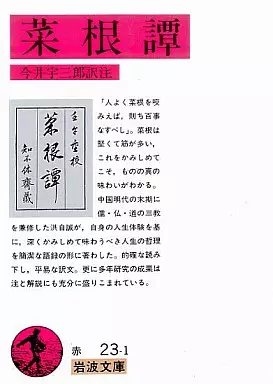 菜根譚
今井宇三郎訳注
「人よく菜根を咬
みえば、則ち百事
なすべし」。菜根は
堅くて筋が多い、
これをかみしめて
こそ、ものの真の
味わいがわかる。
中国明代の末期に
儒・仏・道の三教
を兼修した洪自誠が、自身の人生体験を基
に、深くかみしめて味わうべき人生の哲理
を簡潔な語録の形に著わした。的確な読み
下し、平易な訳文。更に多年研究の成果は
注と解説にも充分に盛りこまれている。
壬午重校
菜根譚
知不休齋藏
赤 23-1
岩波文庫